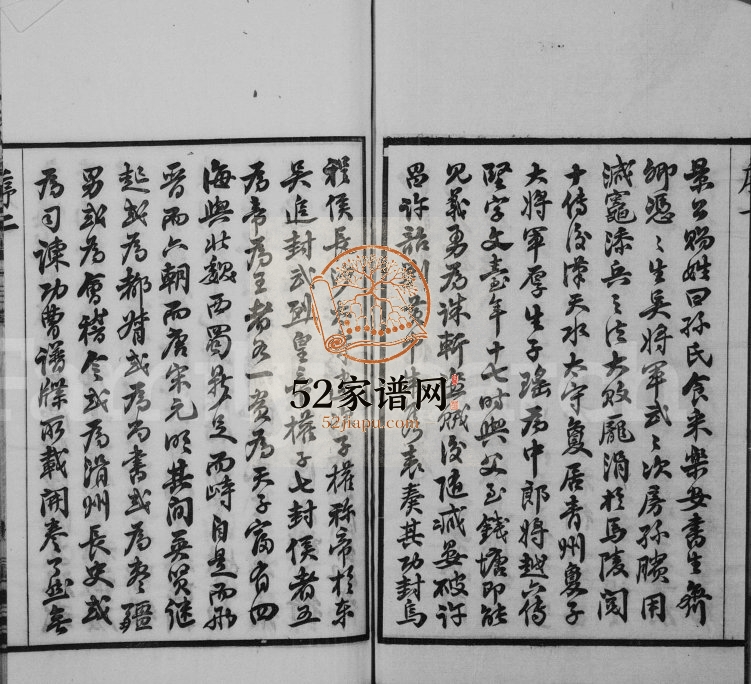 景公賜姓曰孫氏食采樂安書生齊
卿憑憑生吳將軍武武次房孫臏用
減竈添兵之法大敗龐涓於馬陵閱
十傳後漢天水太守夐居青州夐子
大將軍厚生子瑤為中郎將越六傳
堅字文臺年十七時與父至錢塘即能
見義勇為誅斬海賊後隨滅晏破許
昌許詔刺史臧旻表奏其功封烏
程侯長沙子權称帝於東
吳進封武烈皇帝權子七封侯者五
為帝為王者各一貴為天子富有四
海與北魏西蜀鼎足而峙自是而兩
晉而六朝而唐宋元明其間英賢继
起或為都督或為尚書或為封疆
男或為會稽令或為滑州長史或
為司諫功曹譜牒所載開卷了然無
序二
52家谱网
52jiapu.com